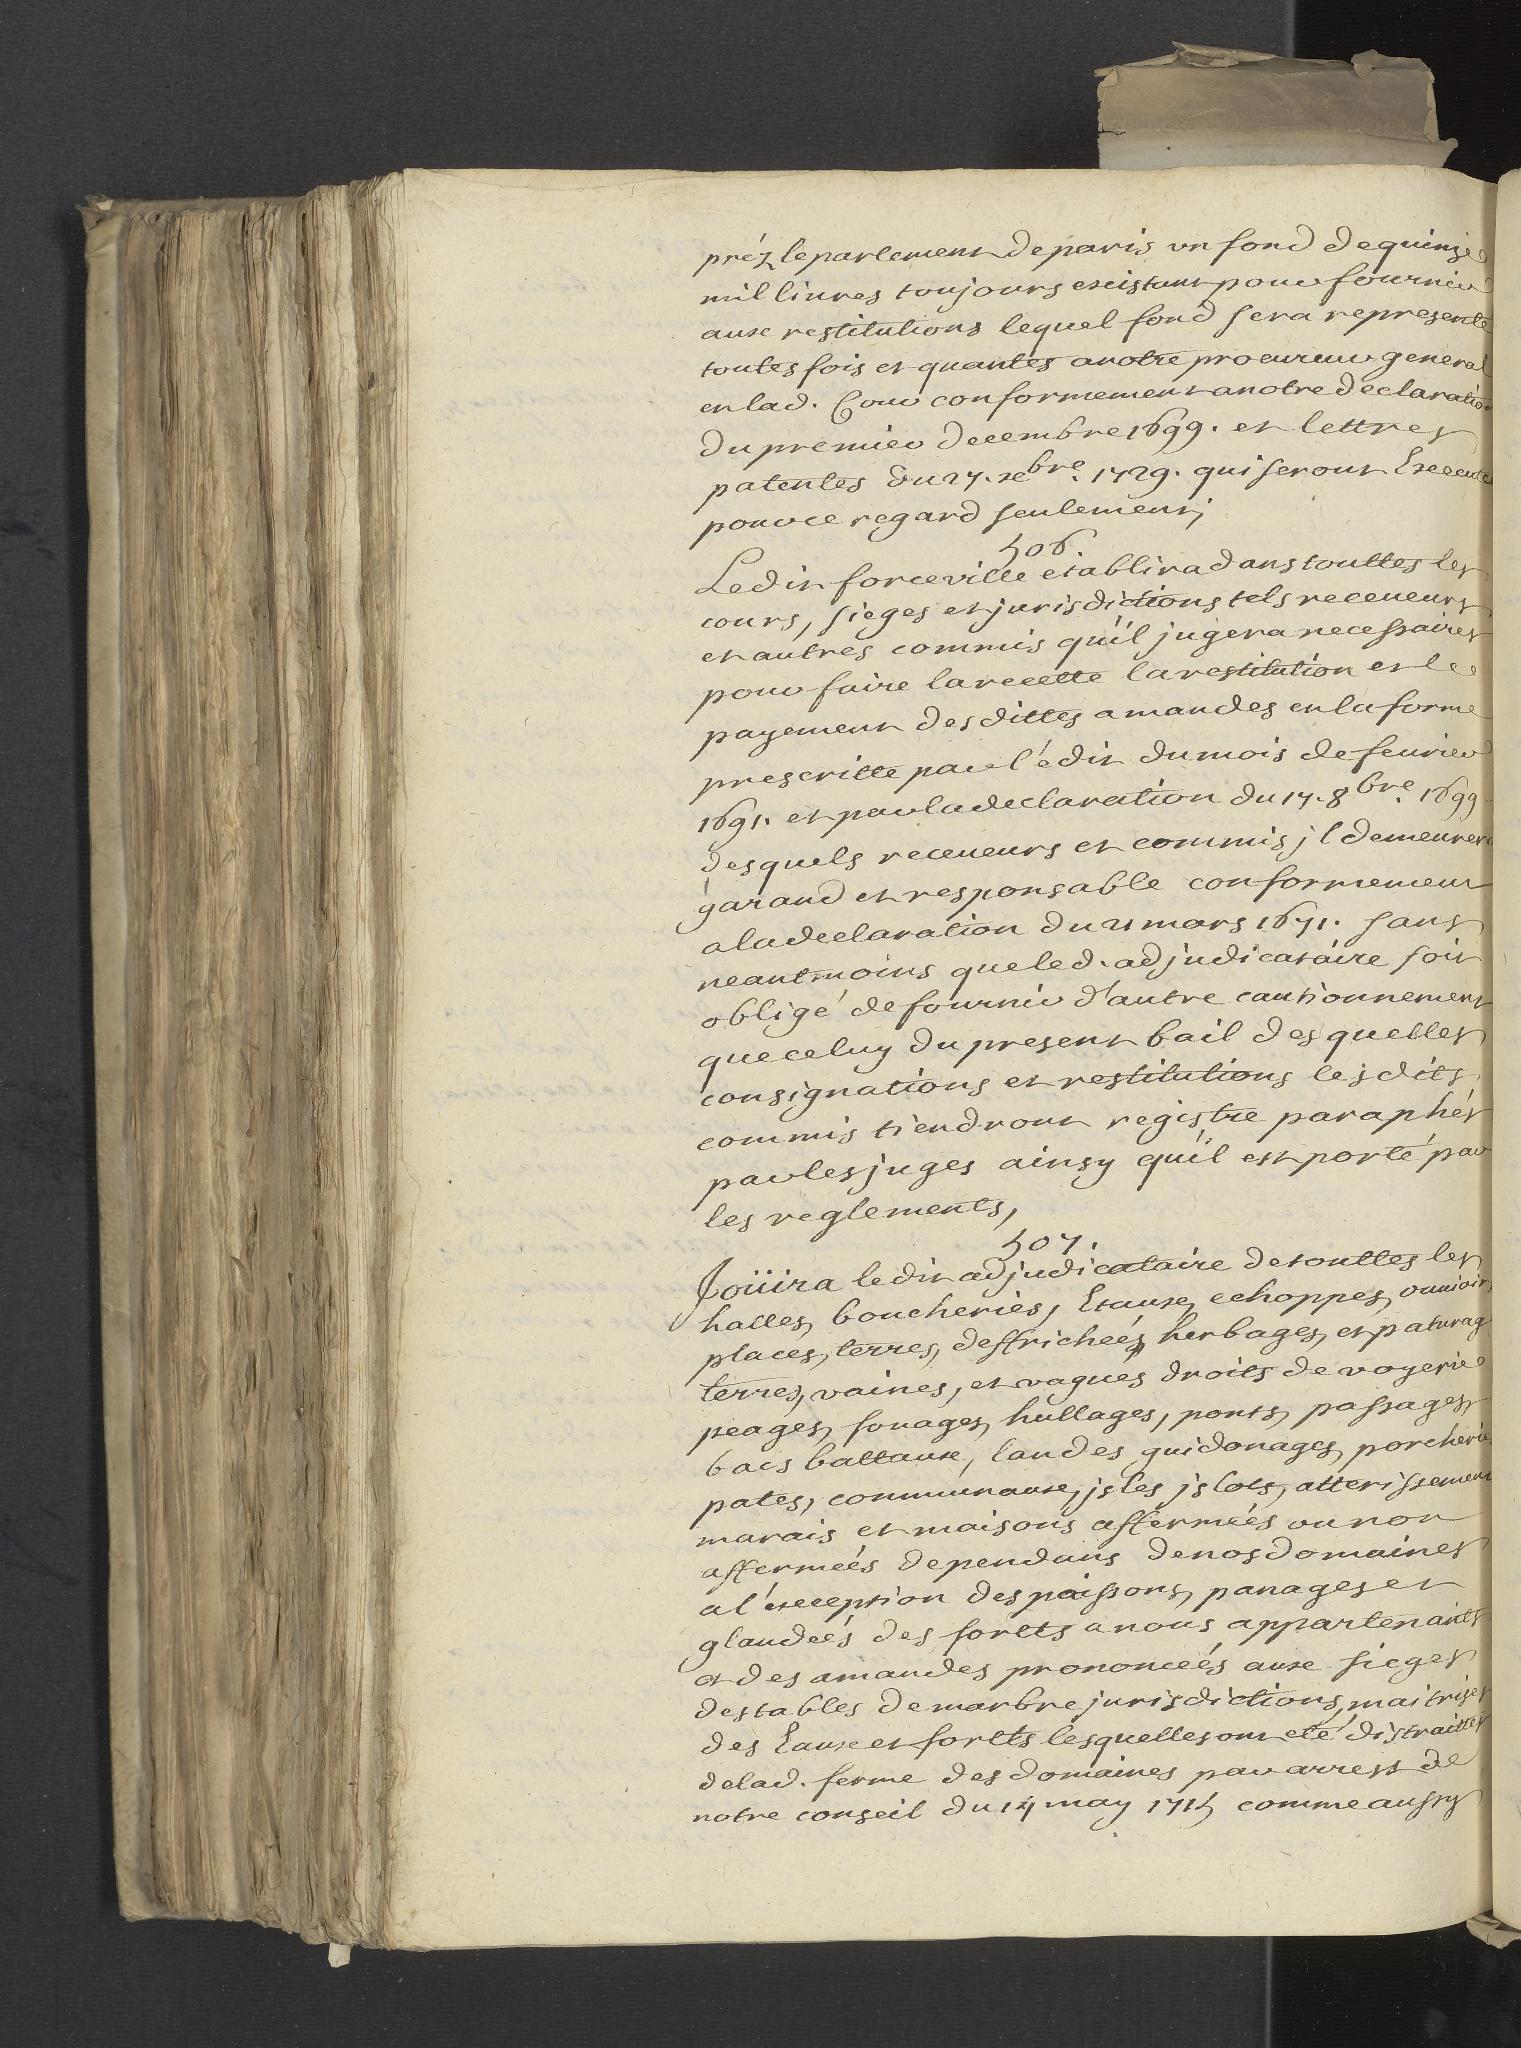 préz le parlement de paris un fond de quinze
mil liures toujours existant pour fournir
aux restitutions lequel fond sera representé
toutes fois et quantes a notre procureur general
en lad. Cour conformement a notre declaration
du premier decembre 1699. et lettres
patentes du 27. xbre. 1729. qui seront Executé
pour ce regard seulement;
506.
Ledit forceville etablira dans touttes les
cours, sieges et jurisdictions tels receueurs
et autres commis qu'il jugera necessaires
pour faire la recette la restitution et le
payement des dittes amandes en la forme
prescritte par l'édit du mois de feurier
1691. et par la declaration du 17. 8bre. 1699
desquels receueurs et commis jl demeurera
garand et responsable conformement
a la declaration du 21 mars 1671. sans
neantmoins que led. adjudicataire soit
obligé de fournir d'autre cautionnement
que celuy du present bail des quelles
consignations et restitutions lesdits
commis tiendront registre paraphés
par les juges ainsy qu'il est porté par
les reglements,
507.
Joüira ledit adjudicataire de touttes les
halles, boucheries, Etaux, echoppes, ouuroirs,
places, terres, deffricheés, herbages, et paturag
terres, vaines, et vagues droits de voyerie
peages, fouages, hullages, ponts, passages,
bacs battaux, landes guidonages, porcherie
pates, communaux, jsles jslots, atterissement
marais et maisons affermeés ou non
affermeés dependans de nos domaines
a l'exception des paissons, panages et
glandeés des forets a nous appartenants
et des amandes prononceés aux sieges
des tables de marbre jurisdictions, maitrises
des Eaux et forets lesquelles ont eté distraittes
de lad. ferme des domaines par arrest de
notre conseil du 14 may 1715 comme aussy